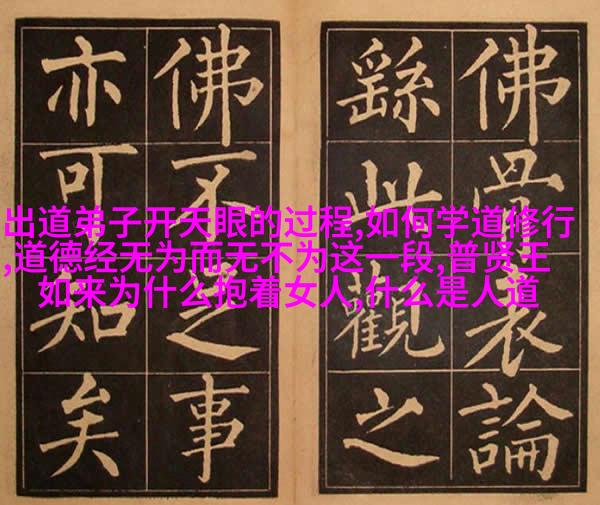 佛骨表論
繇此觀之
佛不足事
亦可知矣
出道弟子开天眼的过程,如何学道修行
,道德经无为而无不为这一段,普贤王
如来为什么抱着女人,什么是人道